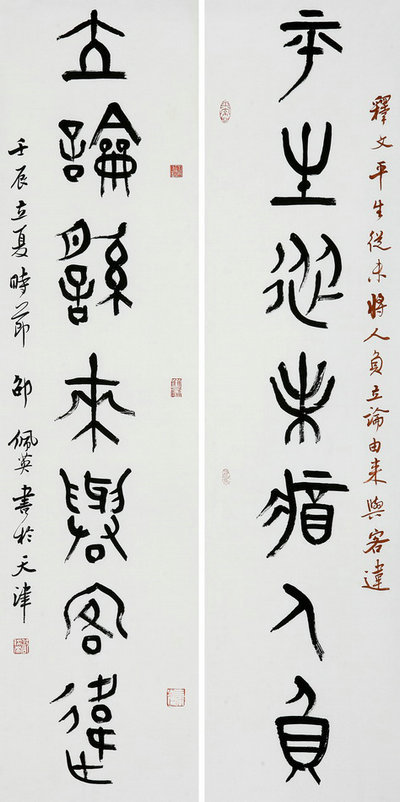 釋文平生從未將人負立論由来與客違
平生從未將人負
立論繇來與客違
壬辰立夏時節邵佩英書於天津